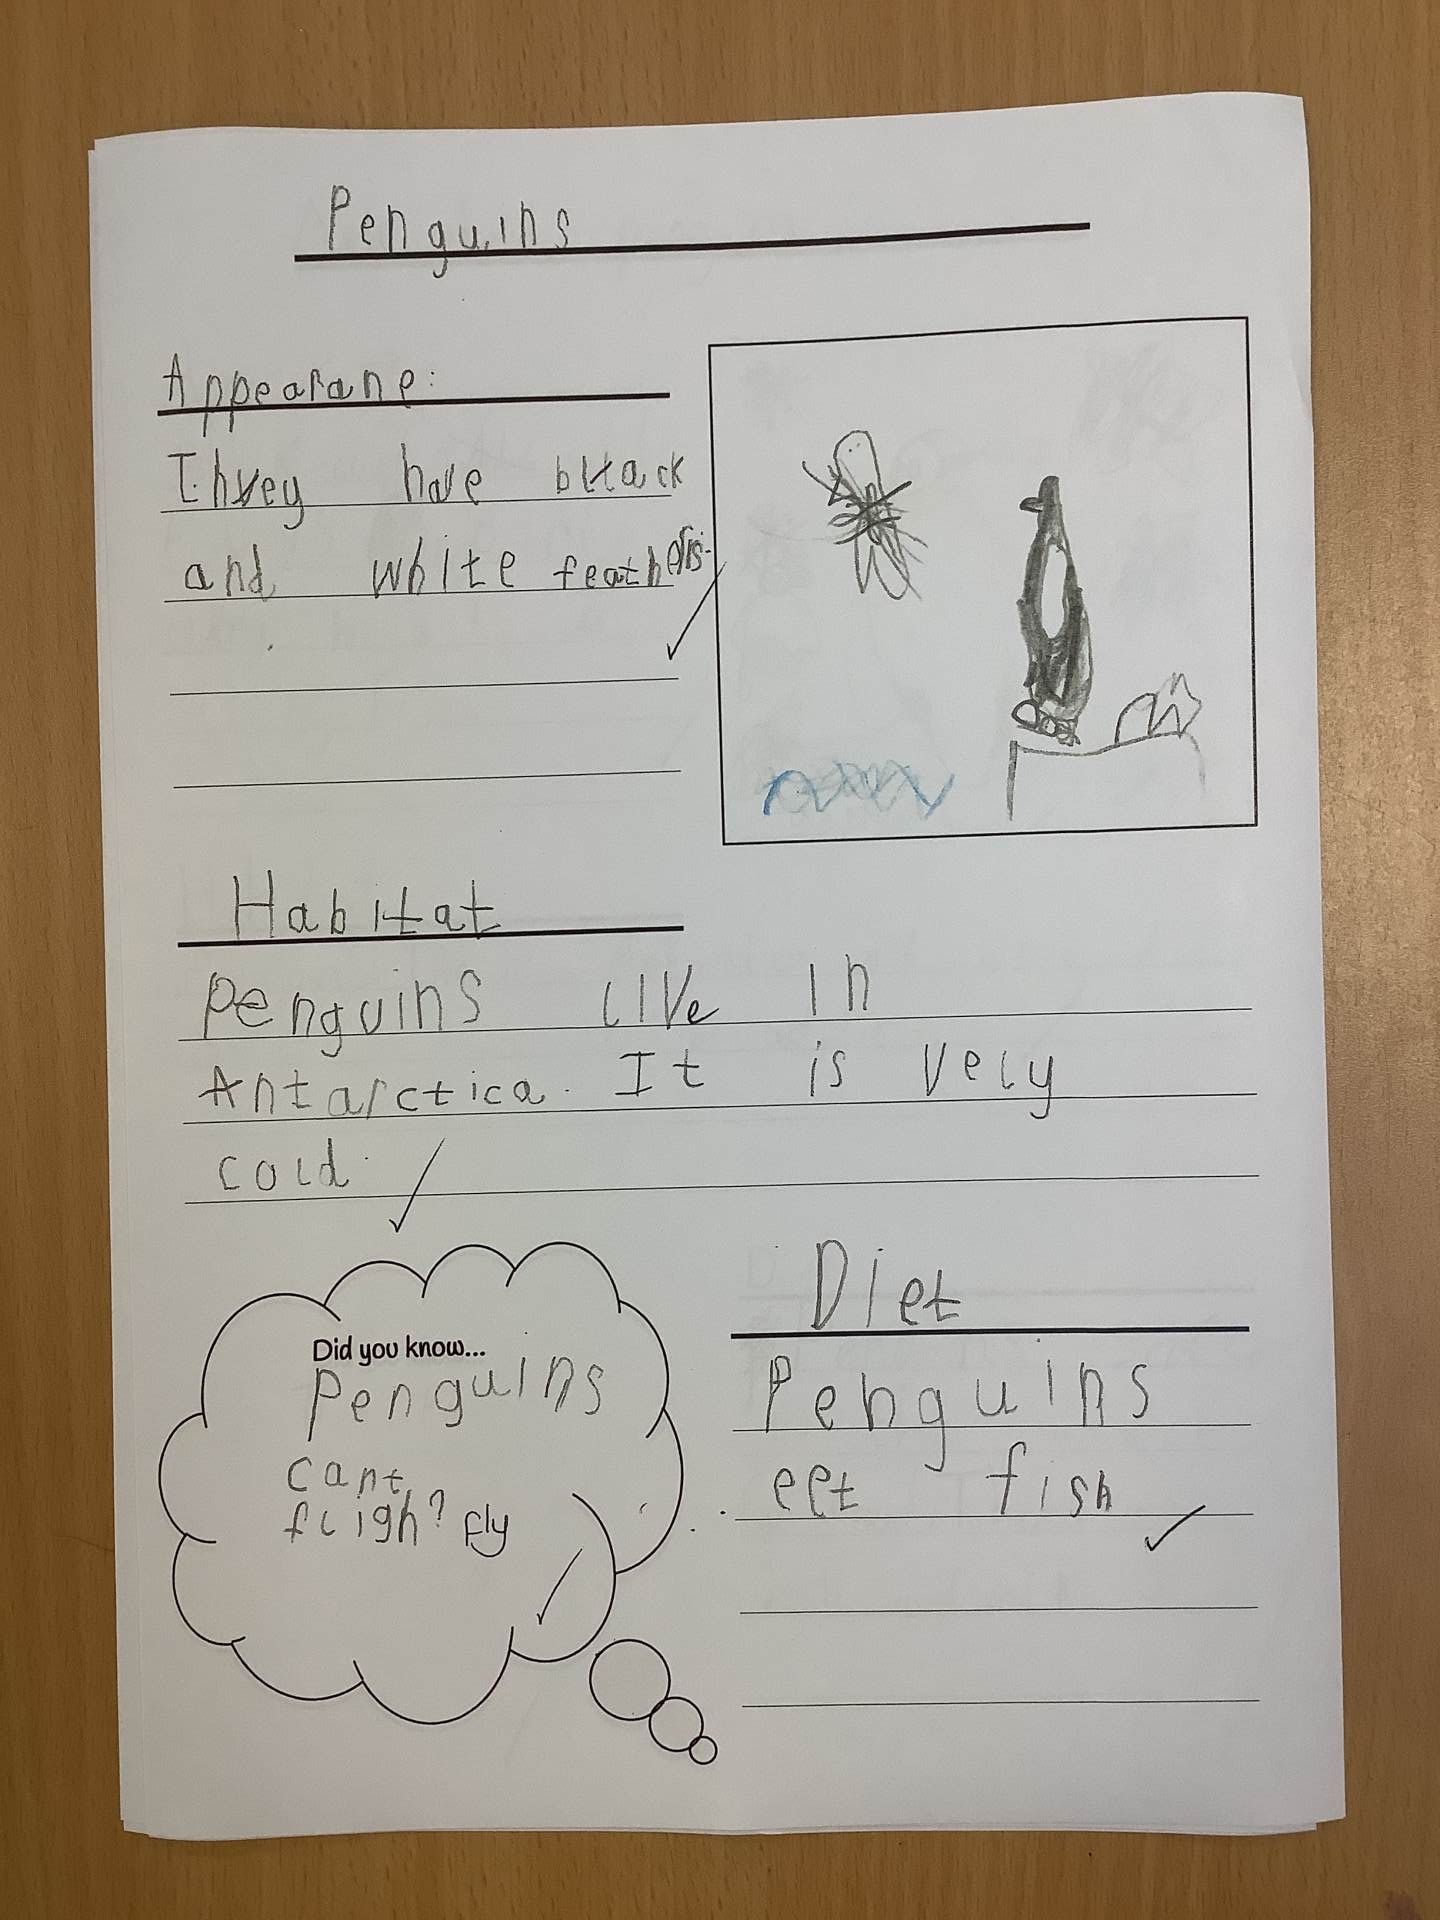 Penguins
Appearane:
They have black
and white feathers.
Habitat
Penguins live in
Antarctica. It is very
cold.
Did you know...
Penguins
cant
fligh? fly
Diet
Penguins
eet fish